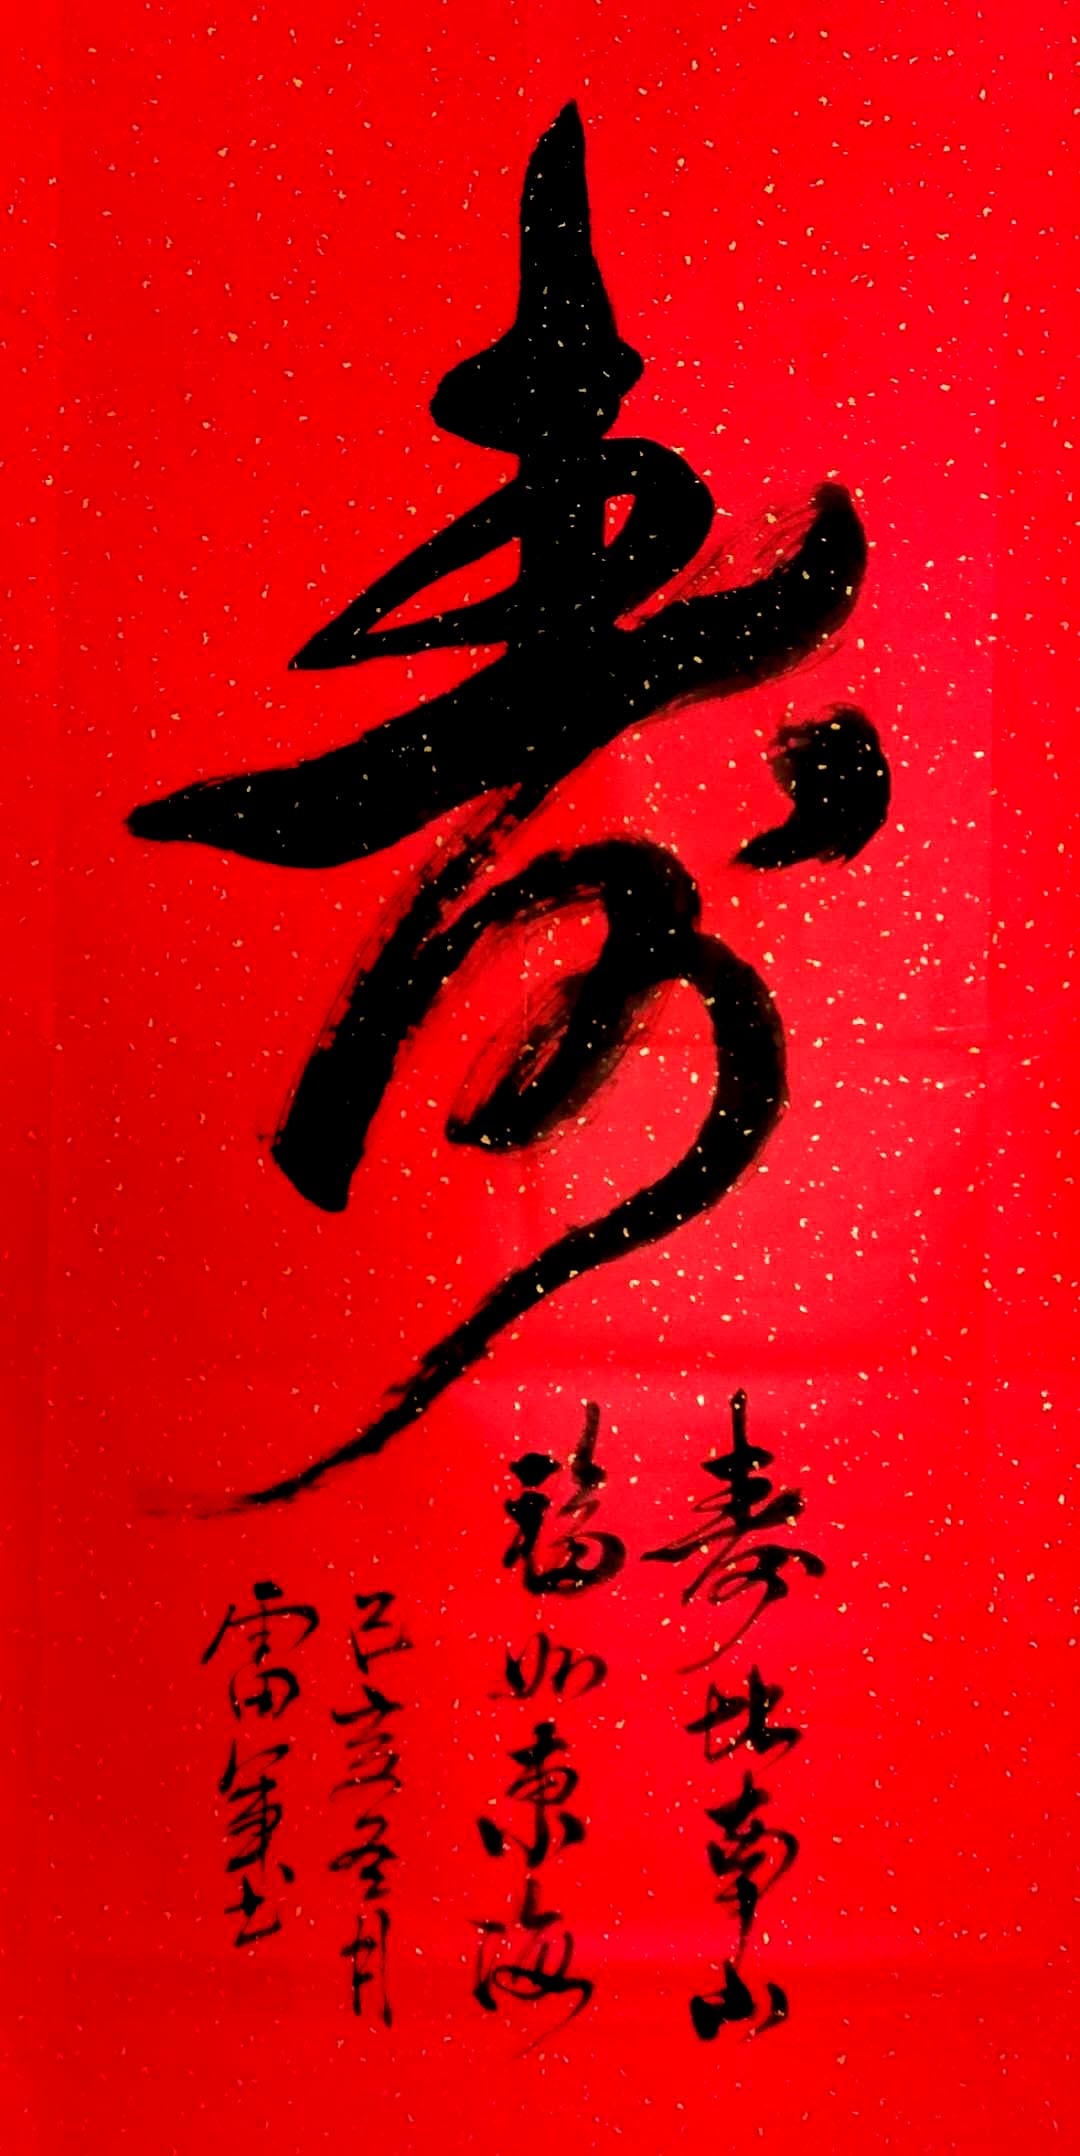 寿
寿比南山
福如东海
己亥冬月
雷军书